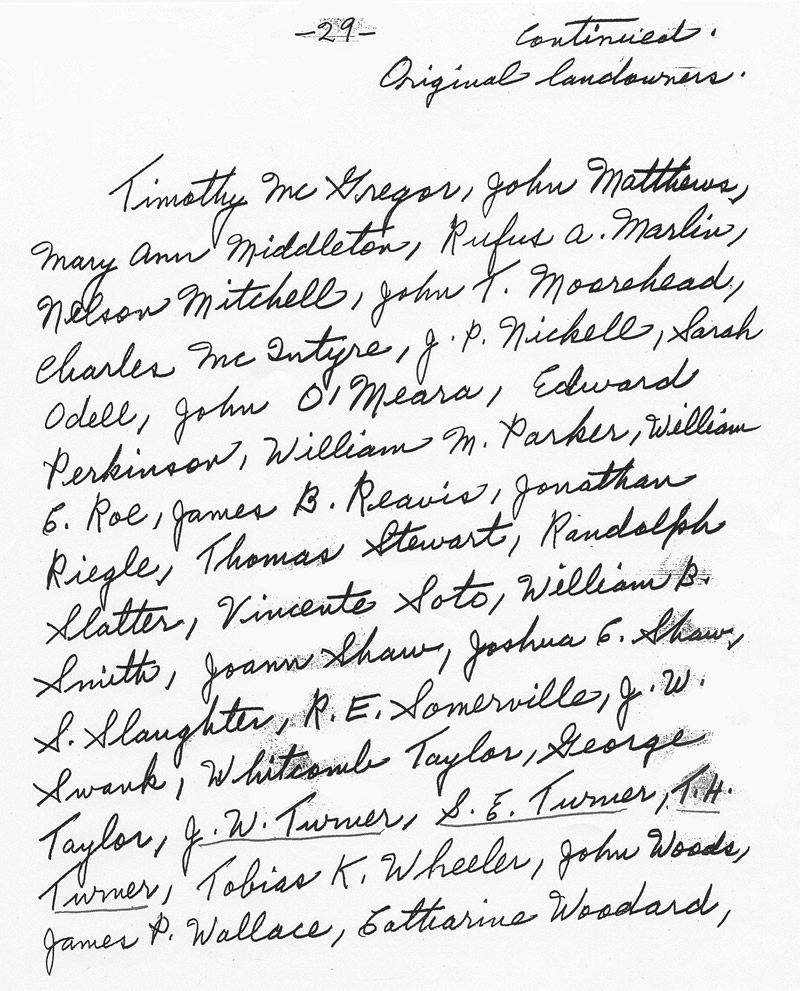 -29-
Continued.
Original landowners.
Timothy Mc Gregor, John Matthews,
Mary Ann Middleton, Rufus A. Marlin,
Nelson Mitchell, John T. Moorehead,
Charles Mc Intyre, J. P. Nickell, Sarah
Odell, John O'Meara, Edward
Perkinson, William M. Parker, William
E. Roe, James B. Reavis, Jonathan
Riegle, Thomas Stewart, Randolph
Slatter, Vincente Soto, William B.
Smith, Joann Shaw, Joshua E. Shaw,
S. Slaughter, R. E. Somerville, J. W.
Swank, Whitcomb Taylor, George
Taylor, J. W. Turner, S. E. Turner, T. H.
Turner, Tobias K. Wheeler, John Woods,
James P. Wallace, Catharine Woodard,